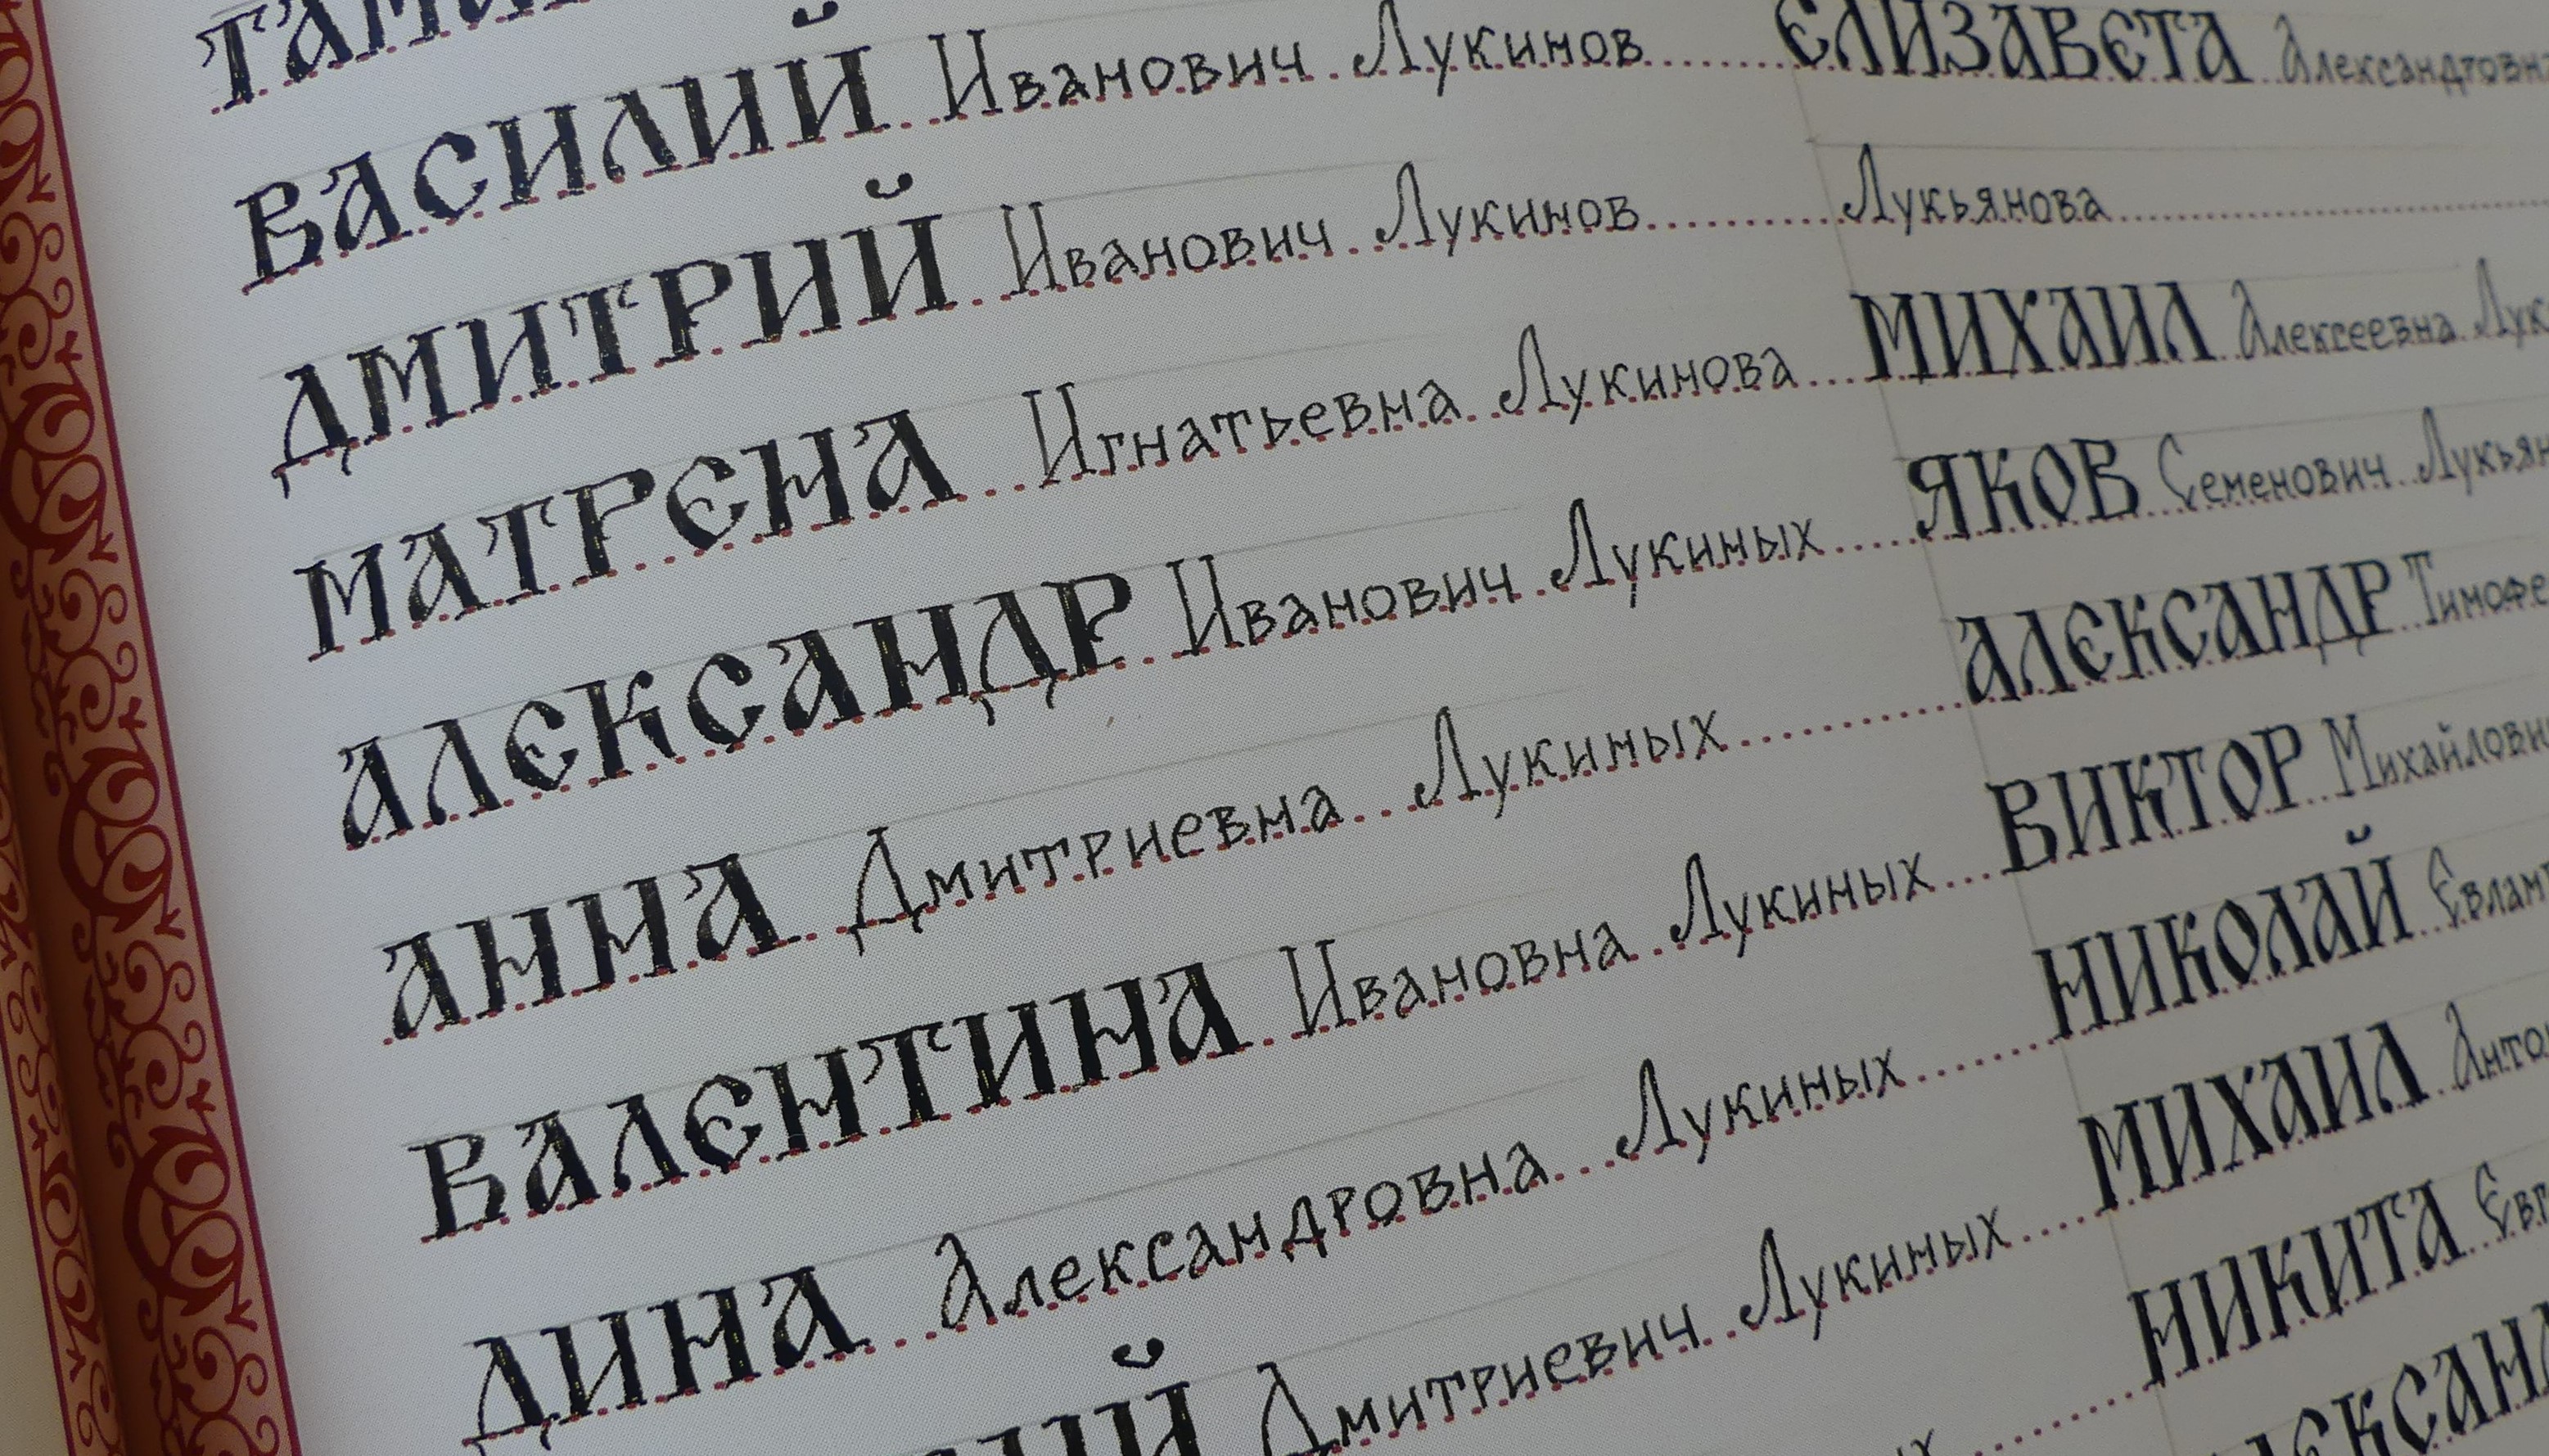 ВАСИЛИЙ Иванович Лукинов
ДМИТРИЙ Иванович Лукинов
МАТРЕНА Игнатьевна Лукинова
АЛЕКСАНДР Иванович Лукиных
АННА Дмитриевна Лукиных
ВАЛЕНТИНА Ивановна Лукиных
ДИНА Александровна Лукиных
Дмитриевич Лукиных
ЕЛИЗАВЕТА
Лукьянова
МИХАИЛ Алексеевна
ЯКОВ Семенович
АЛЕКСАНДР
ВИКТОР
НИКОЛАЙ
МИХАИЛ
НИКИТА